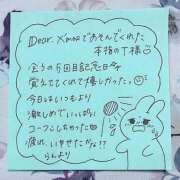 Dear. Xmasであそんでくれた
本指のT様
会うの5回目記念日
覚えててくれて嬉しかった。
今日はいつもより
激しめでいっぱい
コーフンしちゃった
疲れ、いやせたかな!?
らんより